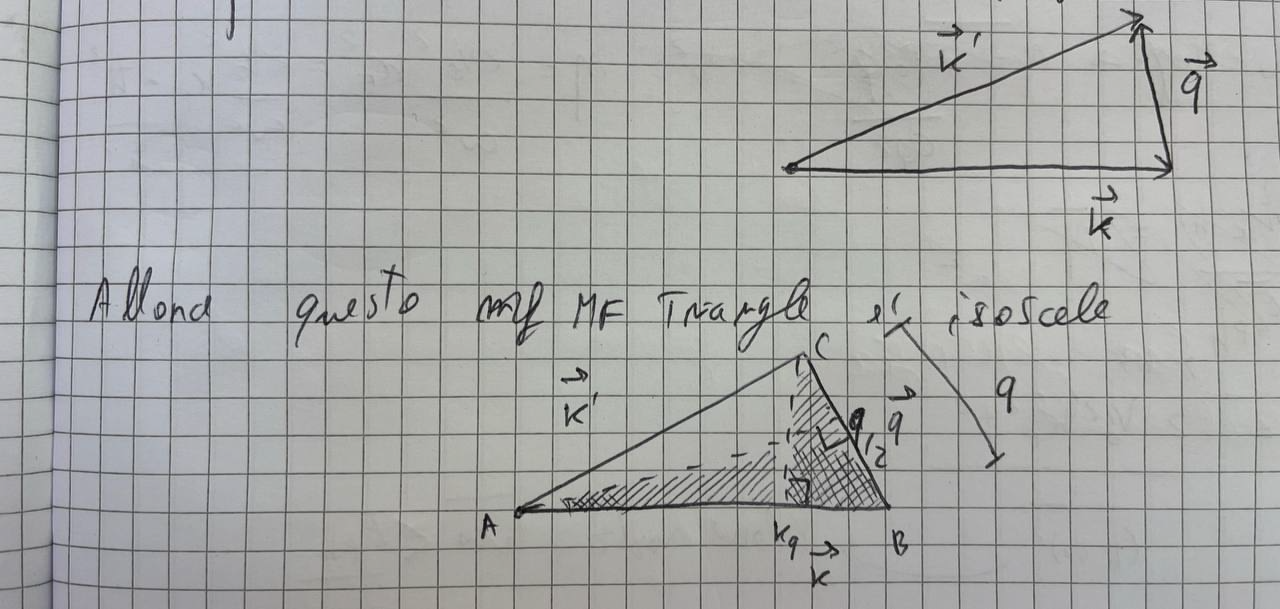 k⃗'
q⃗
k⃗
Allora questo MF Triangle e' isoscele
C
k⃗'
q
q⃗
q/2
A
B
kq
k⃗